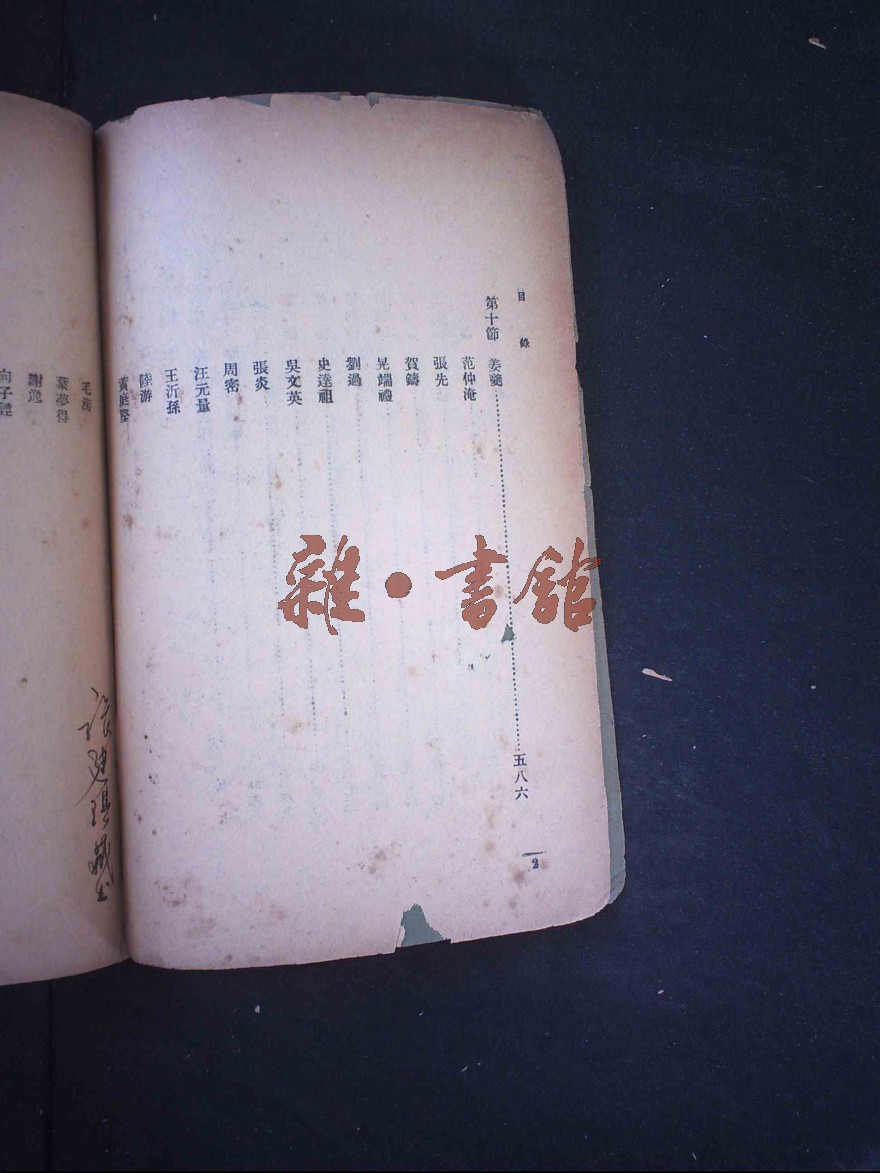 目錄
第十節 姜夔 五八六
范仲淹
張先
賀鑄
晁端禮
劉過
史達祖
吳文英
張炎
周密
汪元量
王沂孫
陸游
黃庭堅
毛滂
葉夢得
謝逸
向子諲
2
雜·書館
張建琪藏